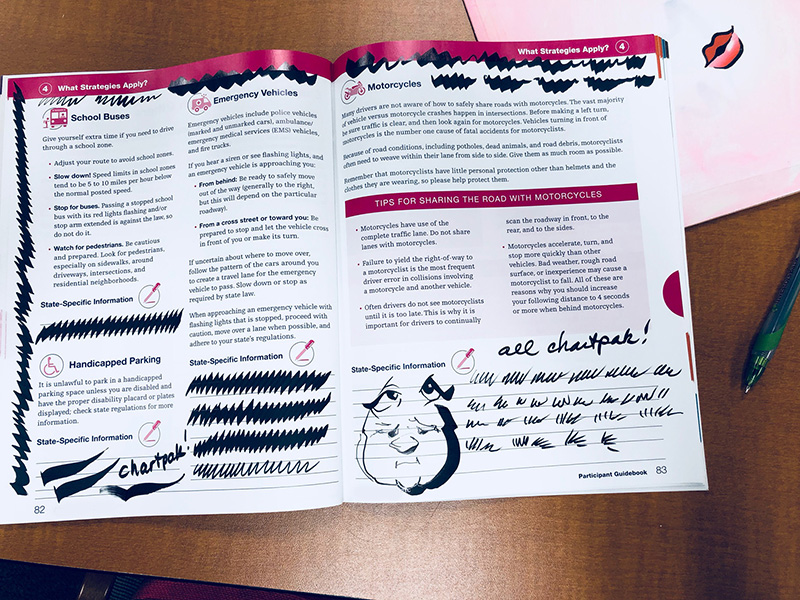 4 What Strategies Apply?
School Buses
Give yourself extra time if you need to drive
through a school zone.
• Adjust your route to avoid school zones.
• Slow down! Speed limits in school zones
tend to be 5 to 10 miles per hour below
the normal posted speed.
• Stop for buses. Passing a stopped school
bus with its red lights flashing and/or
stop arm extended is against the law, so
do not do it.
• Watch for pedestrians. Be cautious
and prepared. Look for pedestrians,
especially on sidewalks, around
driveways, intersections, and
residential neighborhoods.
State-Specific Information
Handicapped Parking
It is unlawful to park in a handicapped
parking space unless you are disabled and
have the proper disability placard or plates
displayed; check state regulations for more
information.
State-Specific Information
chartpak!
82
Emergency Vehicles
Emergency vehicles include police vehicles
(marked and unmarked cars), ambulances/
emergency medical services (EMS) vehicles,
and fire trucks.
If you hear a siren or see flashing lights, and
an emergency vehicle is approaching you:
• From behind: Be ready to safely move
out of the way (generally to the right,
but this will depend on the particular
roadway).
• From a cross street or toward you: Be
prepared to stop and let the vehicle cross
in front of you or make its turn.
If uncertain about where to move over,
follow the pattern of the cars around you
to create a travel lane for the emergency
vehicle to pass. Slow down or stop as
required by state law.
When approaching an emergency vehicle with
flashing lights that is stopped, proceed with
caution, move over a lane when possible, and
adhere to your state's regulations.
State-Specific Information
What Strategies Apply? 4
Motorcycles
Many drivers are not aware of how to safely share roads with motorcycles. The vast majority
of vehicle versus motorcycle crashes happen in intersections. Before making a left turn,
be sure traffic is clear, and then look again for motorcycles. Vehicles turning in front of
motorcycles is the number one cause of fatal accidents for motorcyclists.
Because of road conditions, including potholes, dead animals, and road debris, motorcyclists
often need to weave within their lane from side to side. Give them as much room as possible.
Remember that motorcyclists have little personal protection other than helmets and the
clothes they are wearing, so please help protect them.
TIPS FOR SHARING THE ROAD WITH MOTORCYCLES
• Motorcycles have use of the
complete traffic lane. Do not share
lanes with motorcycles.
• Failure to yield the right-of-way to
a motorcyclist is the most frequent
driver error in collisions involving
a motorcycle and another vehicle.
• Often drivers do not see motorcyclists
until it is too late. This is why it is
important for drivers to continually
scan the roadway in front, to the
rear, and to the sides.
• Motorcycles accelerate, turn, and
stop more quickly than other
vehicles. Bad weather, rough road
surface, or inexperience may cause a
motorcyclist to fall. All of these are
reasons why you should increase
your following distance to 4 seconds
or more when behind motorcycles.
all chartpak!
State-Specific Information
Participant Guidebook 83